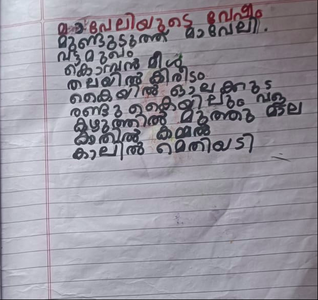 മാവേലിയുടെ വേഷം
മുണ്ടുടുത്ത മാവേലി.
പൂമുഖം
കൊമ്പൻ മീശ
തലയിൽ കിരീടം
കൈയിൽ ഓലക്കുട
രണ്ടു കൈയിലും വള
കഴുത്തിൽ മുത്തു മാല
കാതിൽ കമ്മൽ
കാലിൽ മെതിയടി